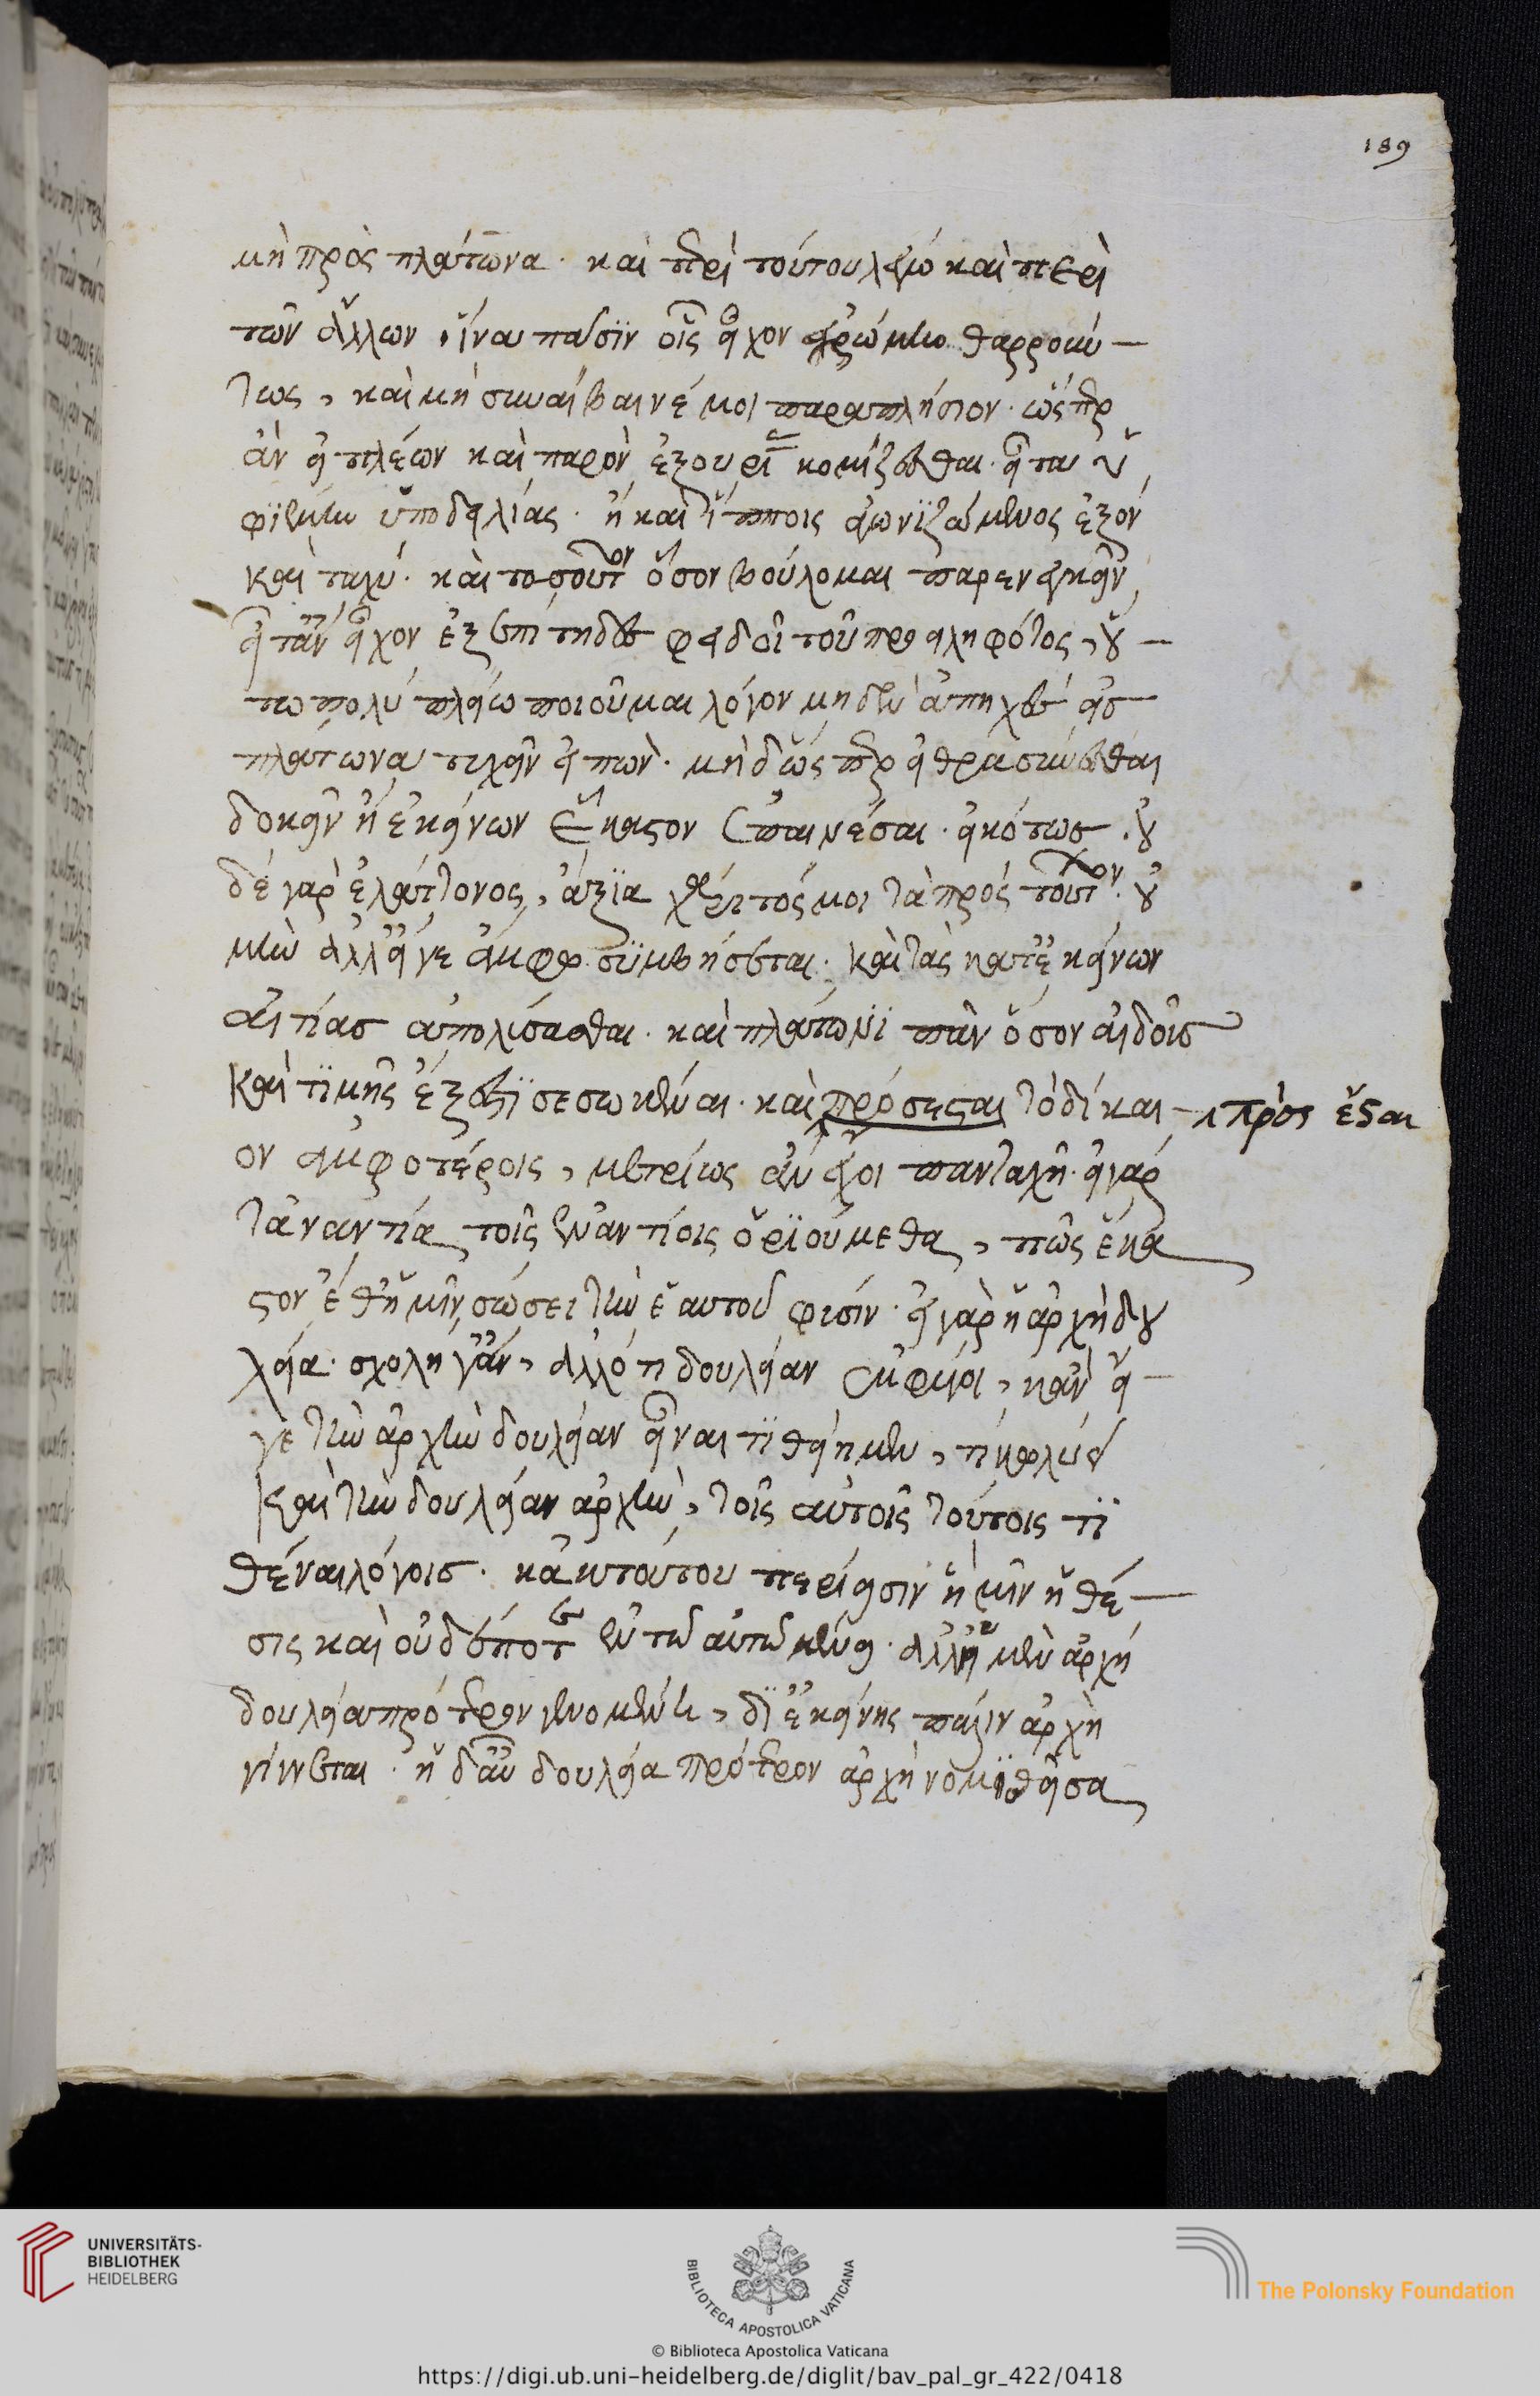 μὴ πρὸς πλάτωνα · καὶ περὶ τούτου λέγω καὶ περὶ
τῶν ἄλλων, ἵνα πᾶσϊν οἷς εἶχον ἐχρώμην θαρρούν-
τως, καὶ μὴ συναίβαινέ μοι παραπλήσιον · ὥσπερ
ἂν εἰ πλέων καὶ παρὸν ἐξ οὐρίας κομίζεσθαι · εἶτα ὑ
φϊέμην ὑπὸ δειλίας · ἢ καὶ ἵπποις ἀγωνϊζόμενος ἐξὸν
καὶ ταχύ · καὶ τοσοῦτον ὅσον βούλομαι παρενεγκεῖν,
εἶτ' ἀνεῖχον ἐξεπίτηδες φειδοῖ τοῦ προειληφότος, οὕ-
τω πολὺ πλείω ποιοῦμαι λόγον μηδὲν ἀπηχὲς εἰς
πλάτωνα τυχεῖν εἰπών · μὴ δ' ὥσπερ εἰ θρασύνεσθαι
δοκεῖν ἢ ἐκείνων ἕκαστον ἐπαινέσαι · εἰκότως · οὐ
δὲ γὰρ ἐλάττονος, ἄξϊα χάριτός μοι τὰ πρὸς τοῦτον · οὐ
μὴν ἀλλ' εἴ γε ἄμφω συμβήσεται · καὶ τὰς κατ' ἐκείνων
αἰτίας ἀπολύσασθαι · καὶ πλάτωνϊ πᾶν ὅσον αἰδοῖς
καὶ τϊμῆς ἔξεστϊ σεσωκέναι · καὶ πρόσεσται τὸ δίκαι- πρὸς ἔσται
ον ἀμφοτέροις, μετρίως ἂν ἔχοι πανταχῆ · εἰ γὰρ
τἀναντία τοῖς ἐναντίοις ὁρϊούμεθα, πῶς ἕκα
στον ἔθ' ἡμῖν σώσει τὴν ἑαυτοῦ φύσιν · εἰ γὰρ ἡ ἀρχὴ δου
λεία · σχολῇ γ' ἂν, ἄλλό τι δουλείαν ἐκφύγοι, κἂν εἴ
γε τὴν ἀρχὴν δουλείαν εἶναι τϊθείημεν, τί κωλύει
καὶ τὴν δουλείαν ἀρχὴν, τοῖς αὐτοῖς τούτοις τϊ
θέναι λόγοις · κἀκ τούτου περίεισιν ἡμῖν ἡ θέ-
σις καὶ οὐδέποτε ἐν τῶ αὐτῶ μένει · ἀλλ' ἡ μὲν ἀρχὴ
δουλεία πρότερον γενομένη, δϊ' ἐκείνης πάλιν ἀρχὴ
γίνεται · ἡ δ' αὖ δουλεία πρότερον ἀρχὴ νομϊσθεῖσα
189
UNIVERSITÄTS-
BIBLIOTHEK
HEIDELBERG
BIBLIOTECA APOSTOLICA VATICANA
The Polonsky Foundation
© Biblioteca Apostolica Vaticana
https://digi.ub.uni-heidelberg.de/diglit/bav_pal_gr_422/0418